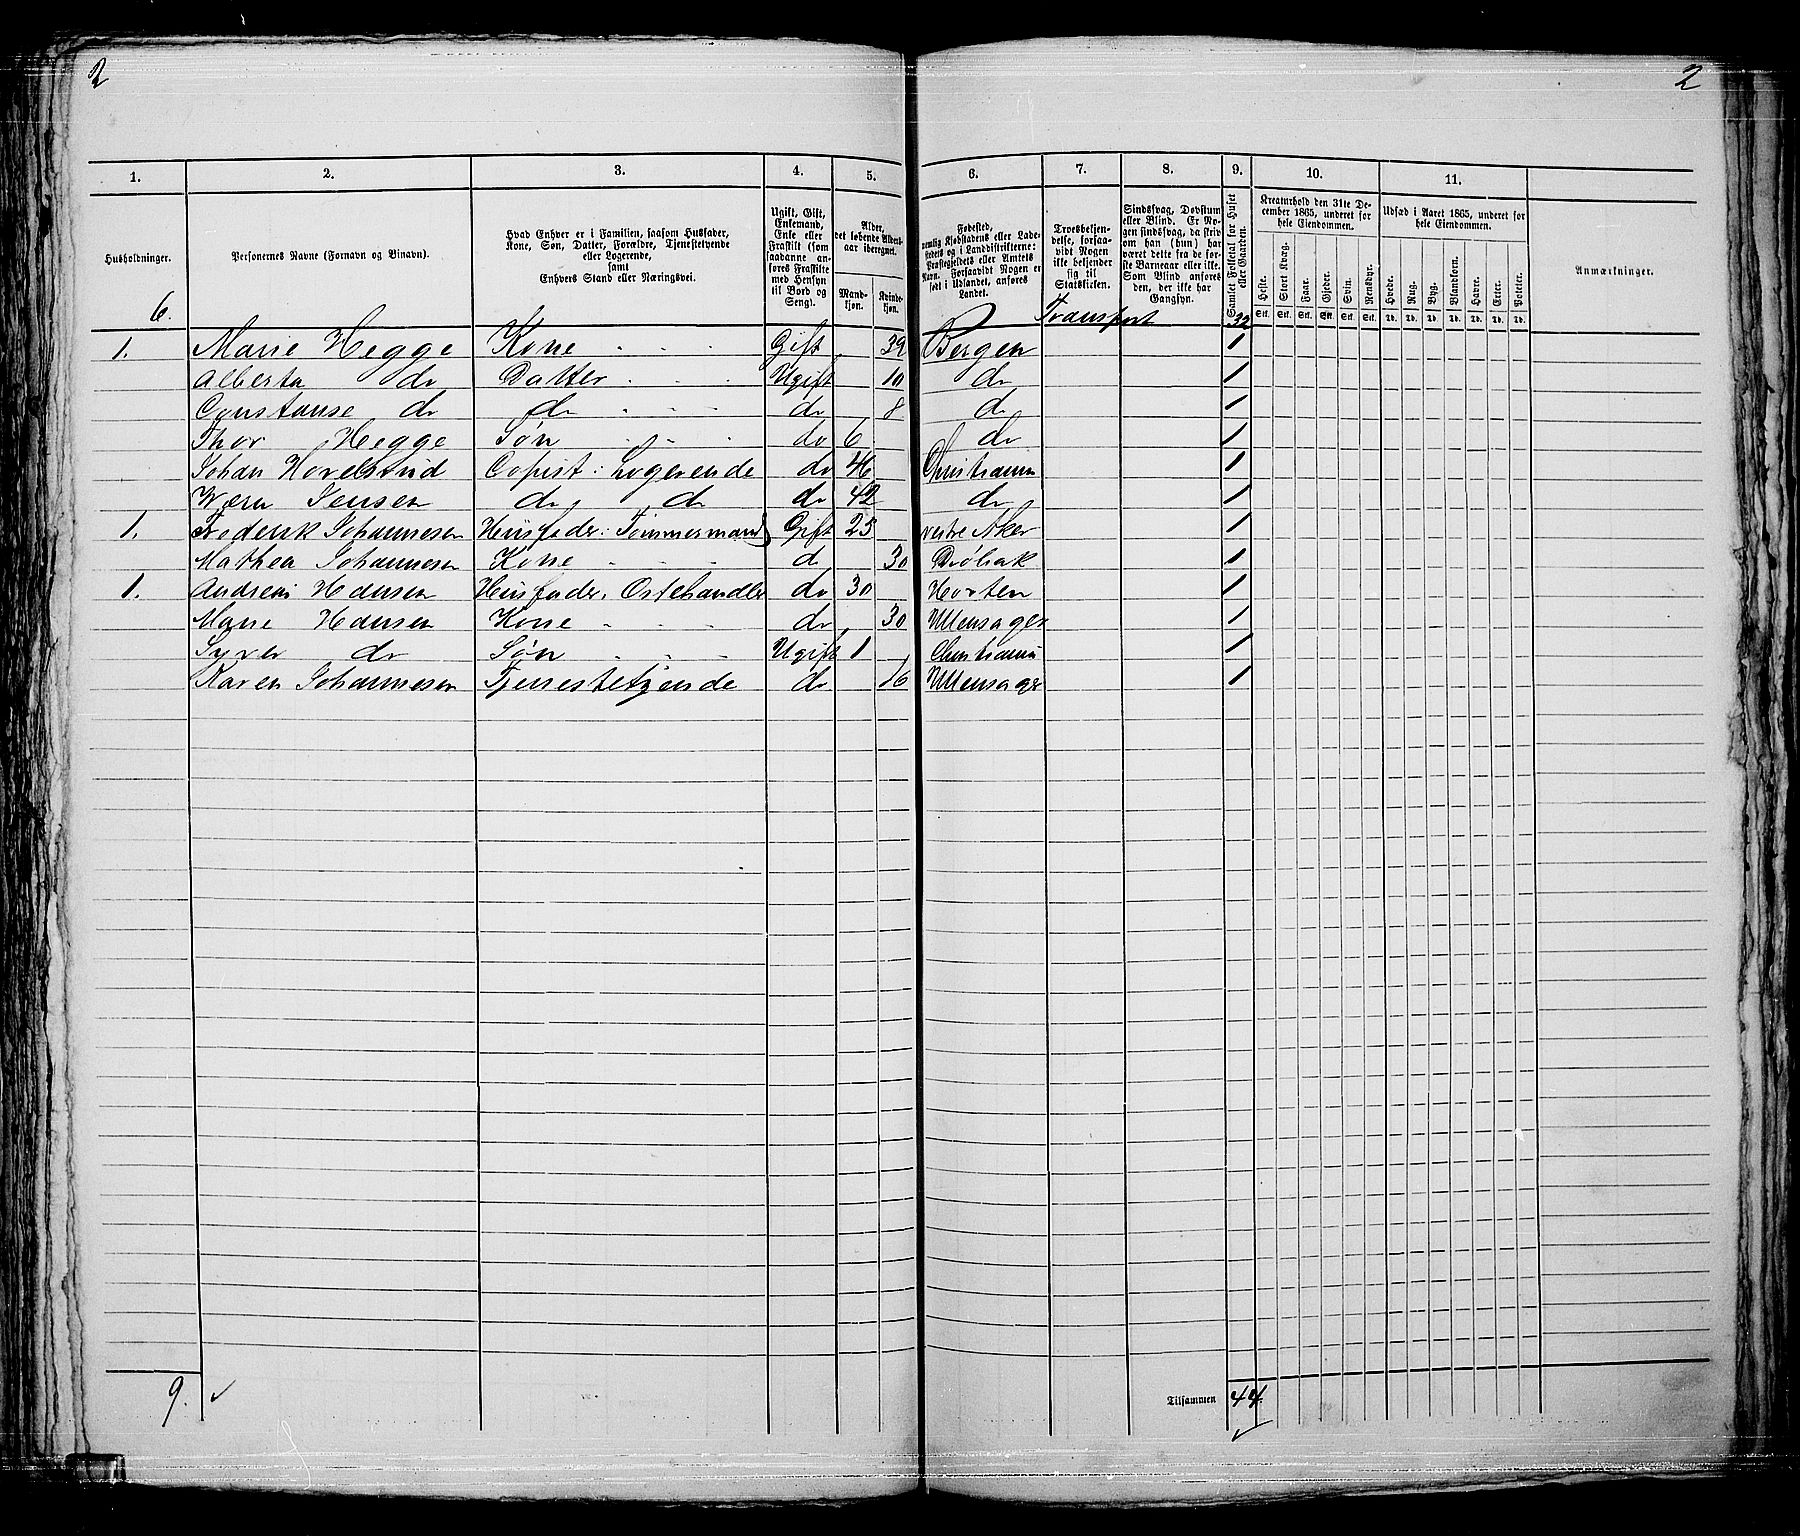 2 2
1. 2. 3. 4. 5. 6. 7. 8. 9. 10. 11.
Husholdninger.
Personernes Navne (Fornavn og Binavn).
Hvad Enhver er i Familien, saasom Husfader,
Kone, Søn, Datter, Forældre, Tjenestetyende
eller Logerende,
samt
Enhvers Stand eller Næringsvei.
Ugift, Gift,
Enkemand,
Enke eller
Fraskilt (som
saadanne an-
føres Fraskilte
med Hensyn
til Bord og
Seng).
Alder,
det løbende Alders-
aar iberegnet.
Mand-
kjøn.
Kvinde-
kjøn.
Fødested,
nemlig Kjøbstadens eller Lade-
stedets og i Landdistrikterne:
Præstegjeldets eller Amtets
Navn. Forsaavidt Nogen er
født i Udlandet, anføres
Landet.
Troesbekjen-
delse, forsaa-
vidt Nogen
ikke bekjender
sig til
Statskirken.
Sindssvag, Døvstum
eller Blind. Er No-
gen sindssvag, da skriv
om han (hun) har
været dette fra de før-
ste Barneaar eller ikke.
Som Blind anføres
den, der ikke har
Gangsyn.
Samlet Folketal for Huset
eller Gaarden.
Kreaturhold den 31te De-
cember 1865, underet for
hele Eiendommen.
Heste. Stort Kvæg. Faar. Gjeder. Svin. Rensdyr.
Stk. Stk. Stk. Stk. Stk. Stk.
Udsæd i Aaret 1865, underet for
hele Eiendommen.
Hvede. Rug. Byg. Blandkorn. Havre. Erter. Poteter.
Td. Td. Td. Td. Td. Td. Td.
Anmærkninger.
6. Transport 32
1. Marie Hegge Kone Gift 39 Bergen 1
Alberta do Datter Ugift 10 do 1
Constanse do do do 8 do 1
Thor Hegge Søn do 6 do 1
Johan Hovelsrud Copist: Logerende do 46 Christiania 1
Wærn Jensen do do do 42 do 1
1. Frederik Johannesen Huusfader: Tømmermand Gift 25 vestre Aker 1
Mathea Johannesen Kone do 30 Drøbak 1
1. Andreas Hansen Huusfader, Ostehandler do 30 Horten 1
Marie Hansen Kone do 30 Ullensager 1
Syver do Søn Ugift 1 Christiania 1
Karen Johannesen Tjenestetyende do 16 Ullensager 1
9. Tilsammen 44.